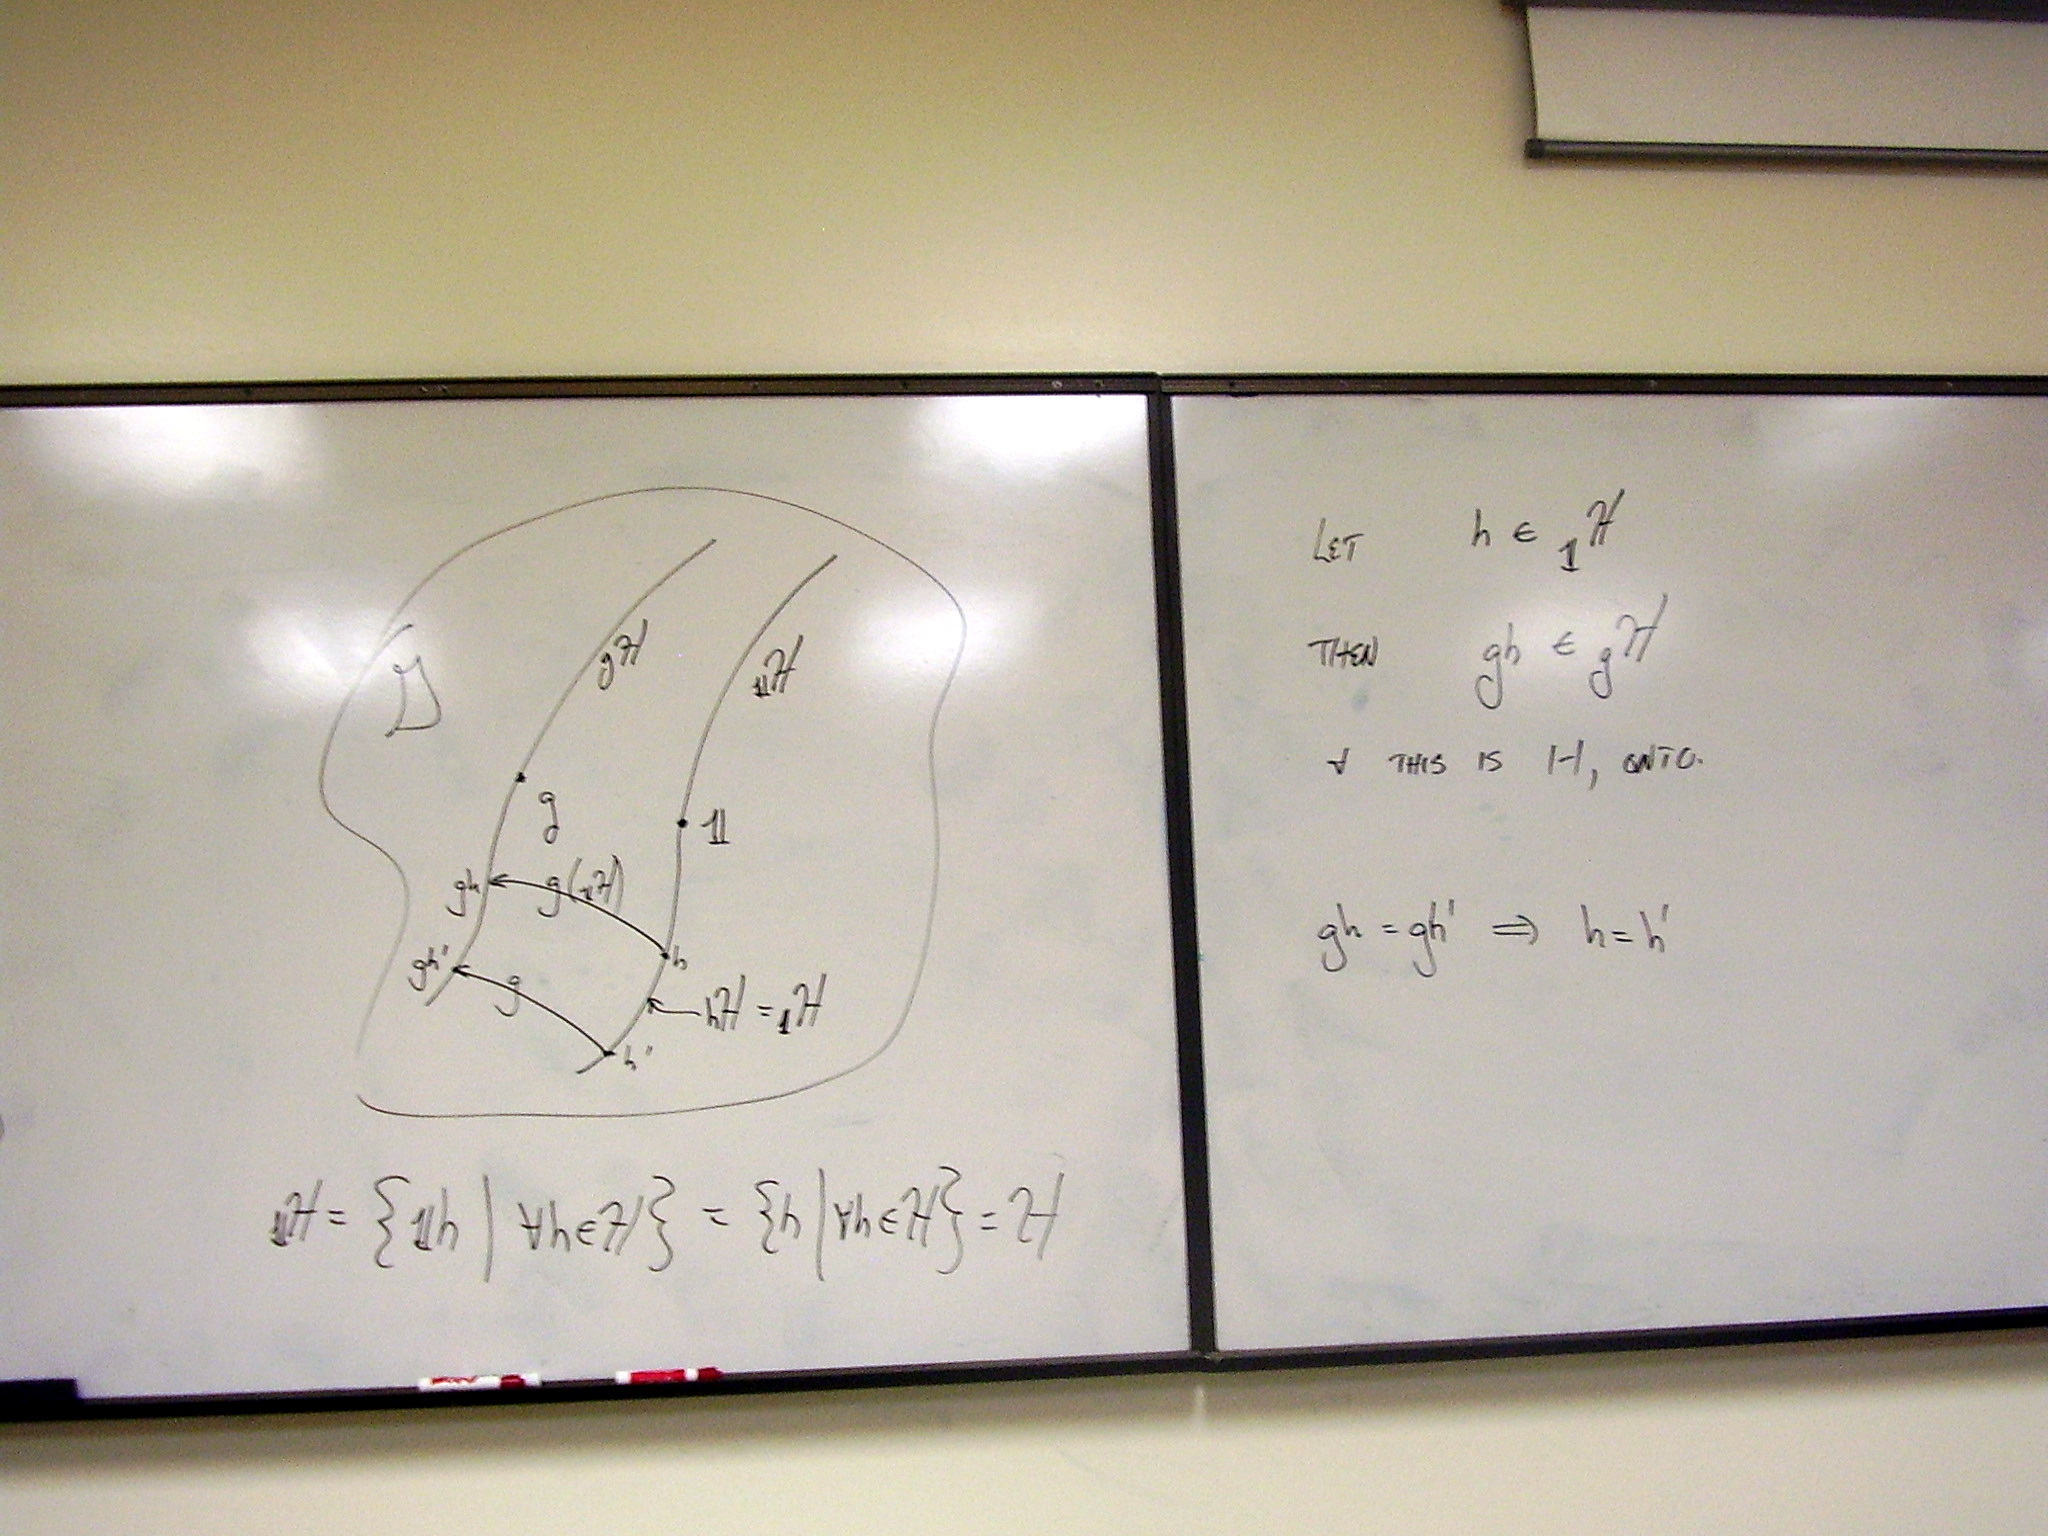 𝒢
gℋ
𝟙ℋ
g
𝟙
gh
g(𝟙ℋ)
gh'
g
h
hℋ = 𝟙ℋ
h'
𝟙ℋ = {𝟙h | ∀h∈ℋ} = {h | ∀h∈ℋ} = ℋ
LET h ∈ 𝟙ℋ
THEN gh ∈ gℋ
& THIS IS 1-1, ONTO.
gh = gh' ⇒ h = h'